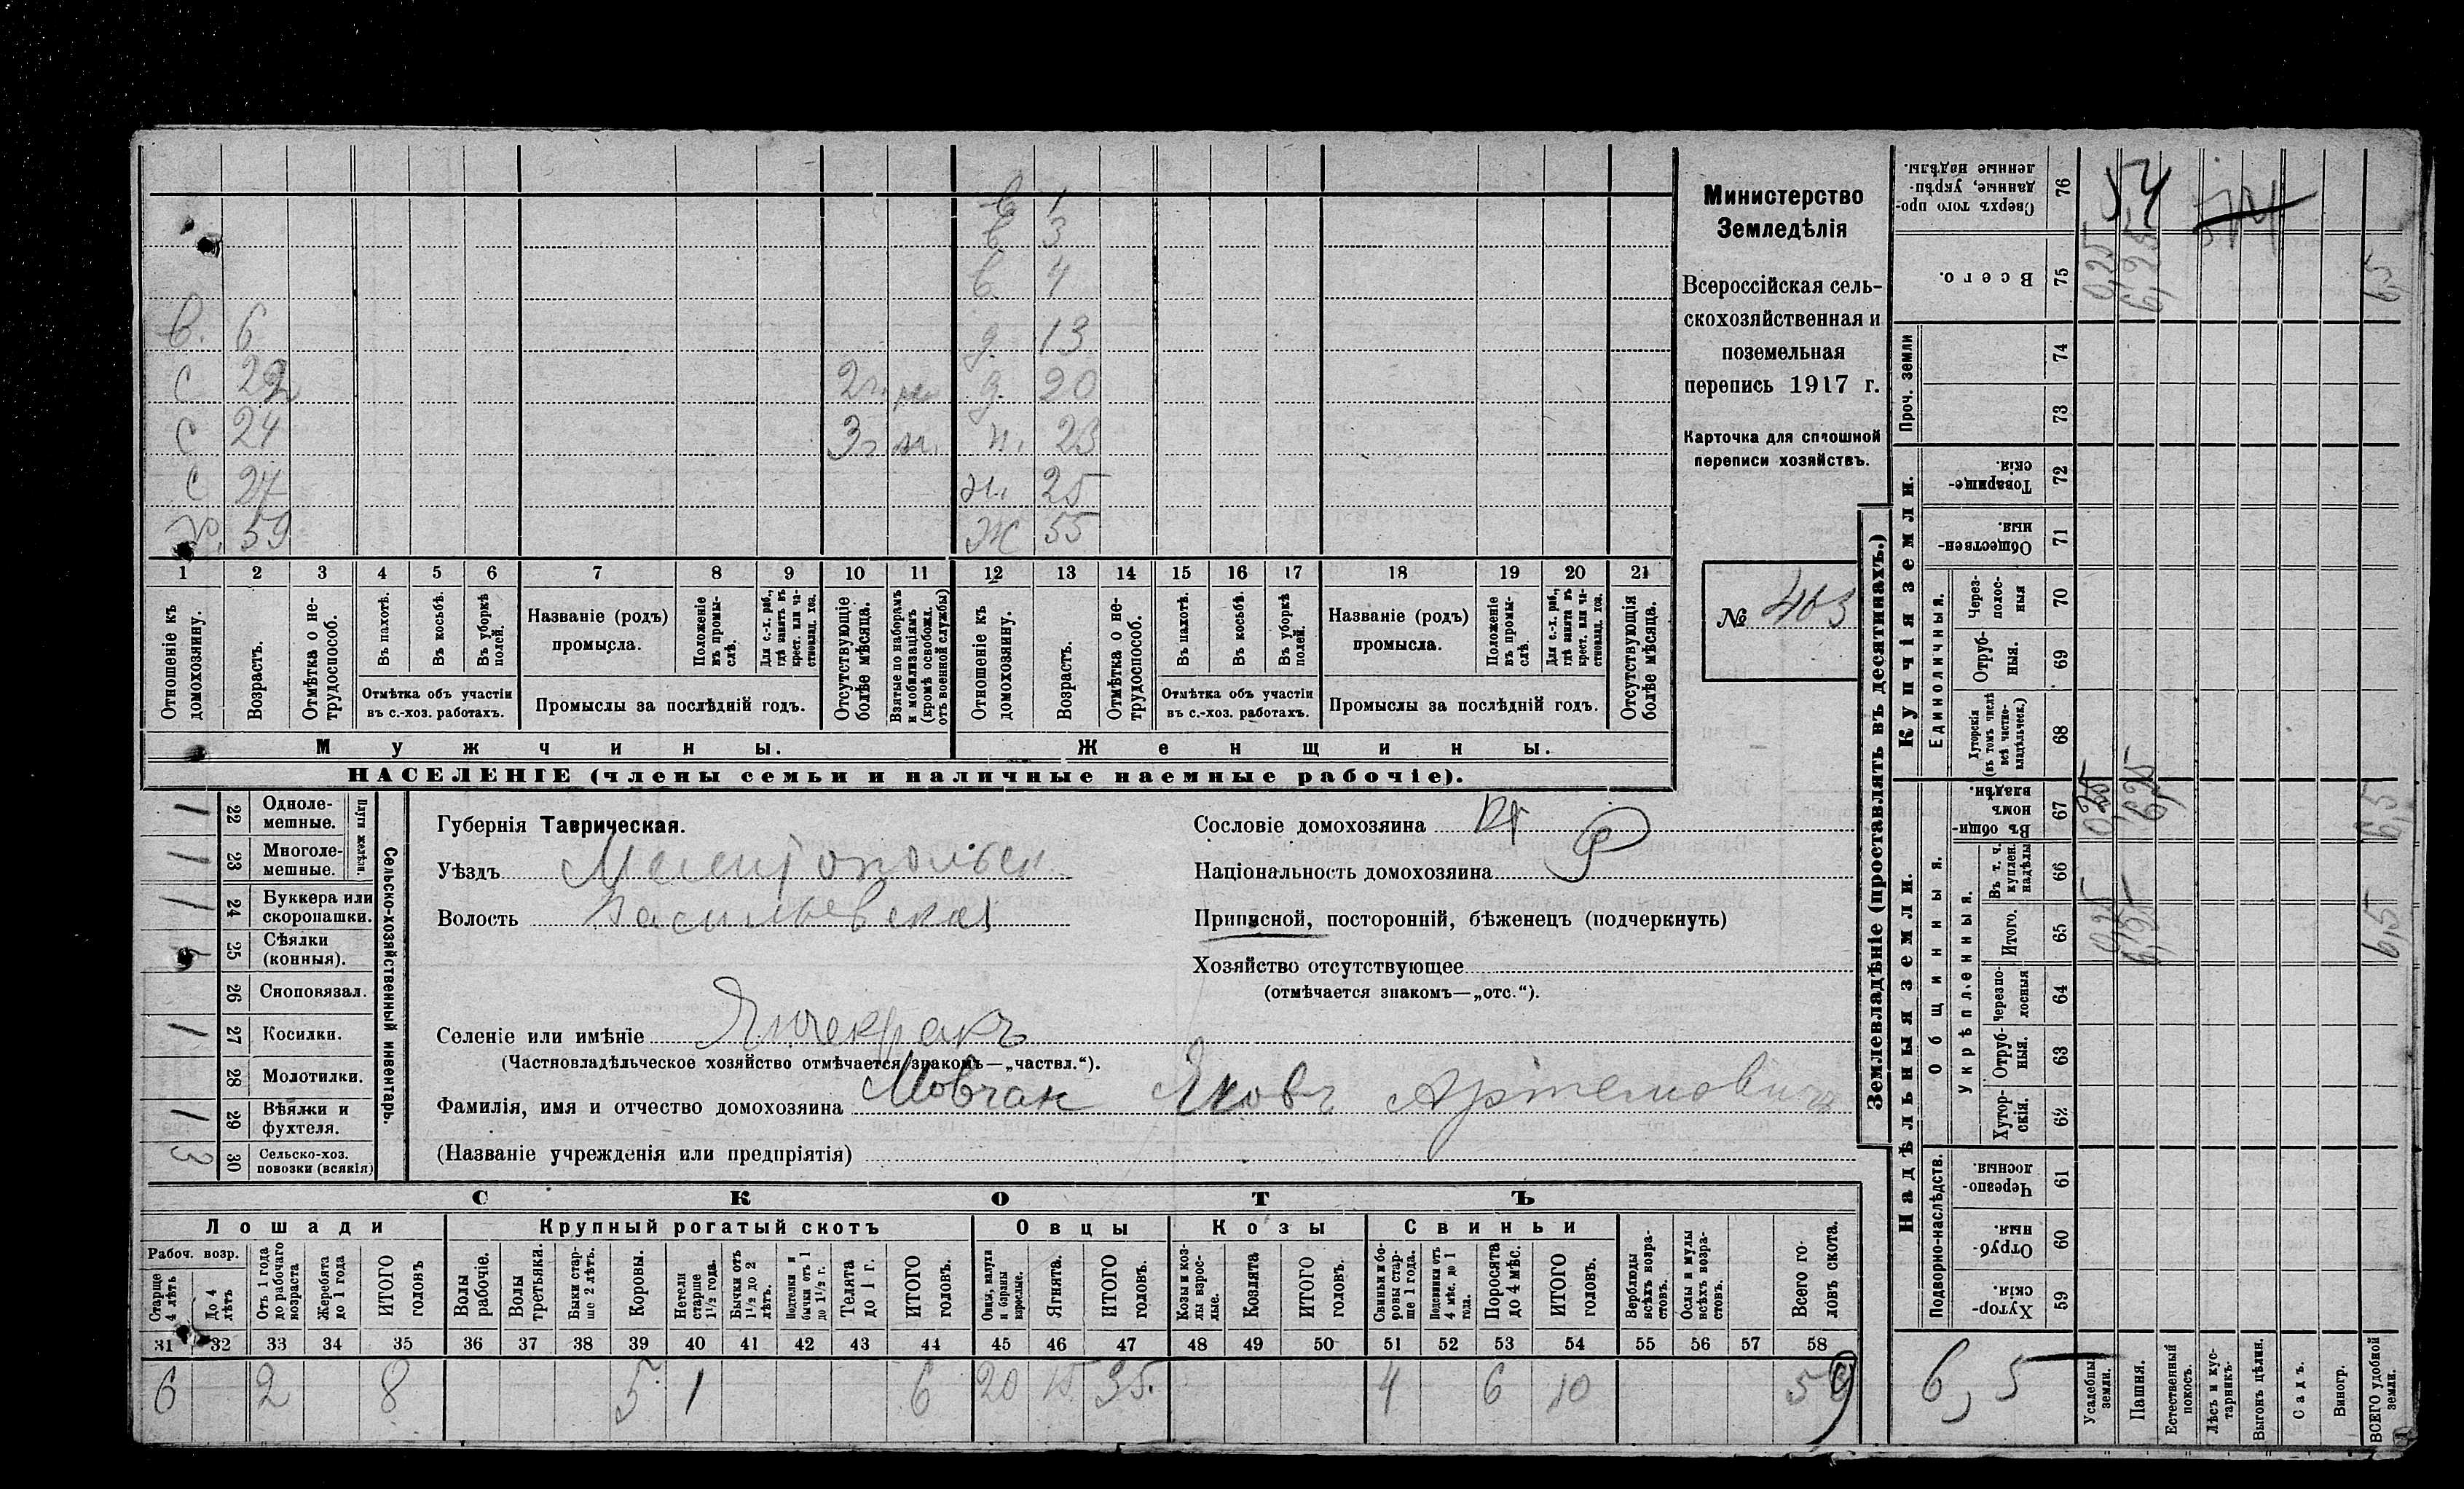 в 1
в 3
в 4
в. 6 д. 13
с 22 2 г. д. 20
с 24 3 г м. 23
с 27 25
59 Ж 55
1 2 3 4 5 6 7 8 9 10 11 12 13 14 15 16 17 18 19 20 21
Отношеніе къ домохозяину.
Возрастъ.
Отмѣтка о нетрудоспособ.
Въ пахотѣ.
Въ косьбѣ.
Въ уборкѣ полей.
Отмѣтка объ участіи
въ с.-хоз. работахъ.
Названіе (родъ)
промысла.
Положеніе въ промыслѣ.
Для с.-х. раб., гдѣ занятъ въ крест. или частновлад. хоз.
Промыслы за послѣдній годъ.
Отсутствующіе болѣе мѣсяца.
Взятые по наборамъ и мобилизаціямъ (кромѣ освобожд. отъ военной службы)
Отношеніе къ домохозяину.
Возрастъ.
Отмѣтка о нетрудоспособ.
Въ пахотѣ.
Въ косьбѣ.
Въ уборкѣ полей.
Отмѣтка объ участіи
въ с.-хоз. работахъ.
Названіе (родъ)
промысла.
Положеніе въ промыслѣ.
Для с.-х. раб., гдѣ занята въ крест. или частновлад. хоз.
Промыслы за послѣдній годъ.
Отсутствующія болѣе мѣсяца.
Мужчины. Женщины.
НАСЕЛЕНІЕ (члены семьи и наличные наемные рабочіе).
Министерство
Земледѣлія
Всероссійская сель-
скохозяйственная и
поземельная
перепись 1917 г.
Карточка для сплошной
переписи хозяйствъ.
№ 403
1 22 Одноле-
мешные.
1 23 Многоле-
мешные.
Плуги желѣзн.
1 24 Буккера или
скоропашки.
25 Сѣялки
(конныя).
26 Сноповязал.
1 27 Косилки.
28 Молотилки.
1 29 Вѣялки и
фухтеля.
3 30 Сельско-хоз.
повозки (всякія)
Сельско-хозяйственный инвентарь.
Губернія Таврическая.
Уѣздъ Мелитопольск
Волость Васильевская
Селеніе или имѣніе Янчекракъ
(Частновладѣльческое хозяйство отмѣчается знакомъ—„частвл.“).
Фамилія, имя и отчество домохозяина Мовчан Яковъ Артемовичъ
(Названіе учрежденія или предпріятія)
Сословіе домохозяина кр
Національность домохозяина Р
Приписной, посторонній, бѣженецъ (подчеркнуть)
Хозяйство отсутствующее
(отмѣчается знакомъ—„отс.“).
СКОТЪ
Лошади Крупный рогатый скотъ Овцы Козы Свиньи
Рабоч. возр.
Старше 4 лѣтъ
До 4 лѣтъ
Отъ 1 года до рабочаго возраста
Жеребята до 1 года
ИТОГО головъ
Волы рабочіе.
Волы третьяки.
Быки старше 2 лѣтъ.
Коровы.
Нетели старше 1½ года.
Бычки отъ 1½ до 2 лѣтъ.
Подтелки и бычки отъ 1 до 1½ г.
Телята до 1 г.
ИТОГО головъ.
Овцы, валухи и бараны взрослые.
Ягнята.
ИТОГО головъ.
Козы и козлы взрослые.
Козлята
ИТОГО головъ.
Свиньи и боровы старше 1 года.
Подсвинки отъ 4 мѣс. до 1 года.
Поросята до 4 мѣс.
ИТОГО головъ.
Верблюды всѣхъ возрастовъ.
Ослы и мулы всѣхъ возрастовъ.
Всего головъ скота.
31 32 33 34 35 36 37 38 39 40 41 42 43 44 45 46 47 48 49 50 51 52 53 54 55 56 57 58
6 2 8 5 1 6 20 15 35 4 6 10 59
Землевладѣніе (проставлять въ десятинахъ.)
Надѣльныя земли. Купчія земли.
Проч. земли
Общинныя.
Укрѣпленныя.
Единоличныя.
Подворно-наслѣдств.
Сверхъ того проданные, укрѣпленные надѣлы. 76 54
Всего. 75 0,25 6,25 6,5
74
73
Товарищескія. 72
Общественныя. 71
Черезполосныя 70
Отрубныя. 69
Хуторскія (въ томъ числѣ всѣ частновладѣльческ.) 68
Въ общинномъ владѣн. 67 0,25 6,25 6,5
Въ т. ч. куплен. надѣлы 66
Итого. 65 0,25 6,25 6,5
Черезполосныя 64
Отрубныя. 63
Хуторскія. 62
Черезполосныя. 61
Отрубныя. 60
Хуторскія. 59
6,5
Усадебны земли.
Пашня.
Естественный покосъ.
Лѣсъ и кустарникъ.
Выгонъ цѣлин.
Садъ.
Виногр.
ВСЕГО удобной земли.